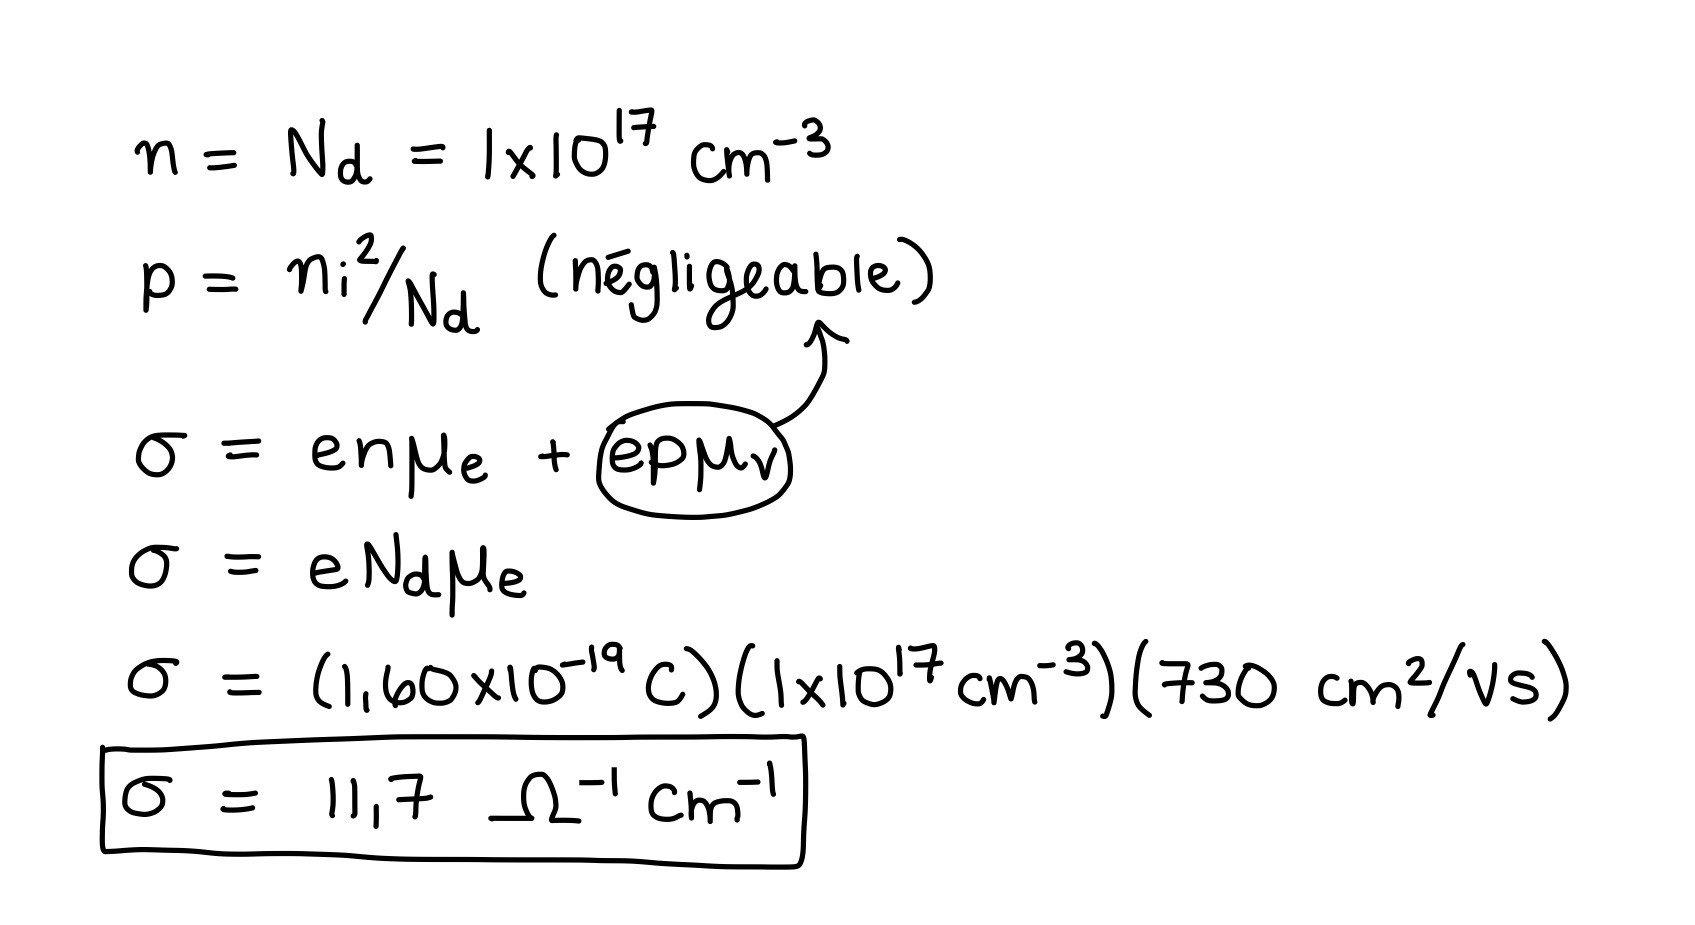 n = Nd = 1x10¹⁷ cm⁻³
p = ni²/Nd (négligeable)
σ = enμe + epμv
σ = eNdμe
σ = (1,60x10⁻¹⁹ C)(1x10¹⁷ cm⁻³)(730 cm²/Vs)
σ = 11,7 Ω⁻¹ cm⁻¹